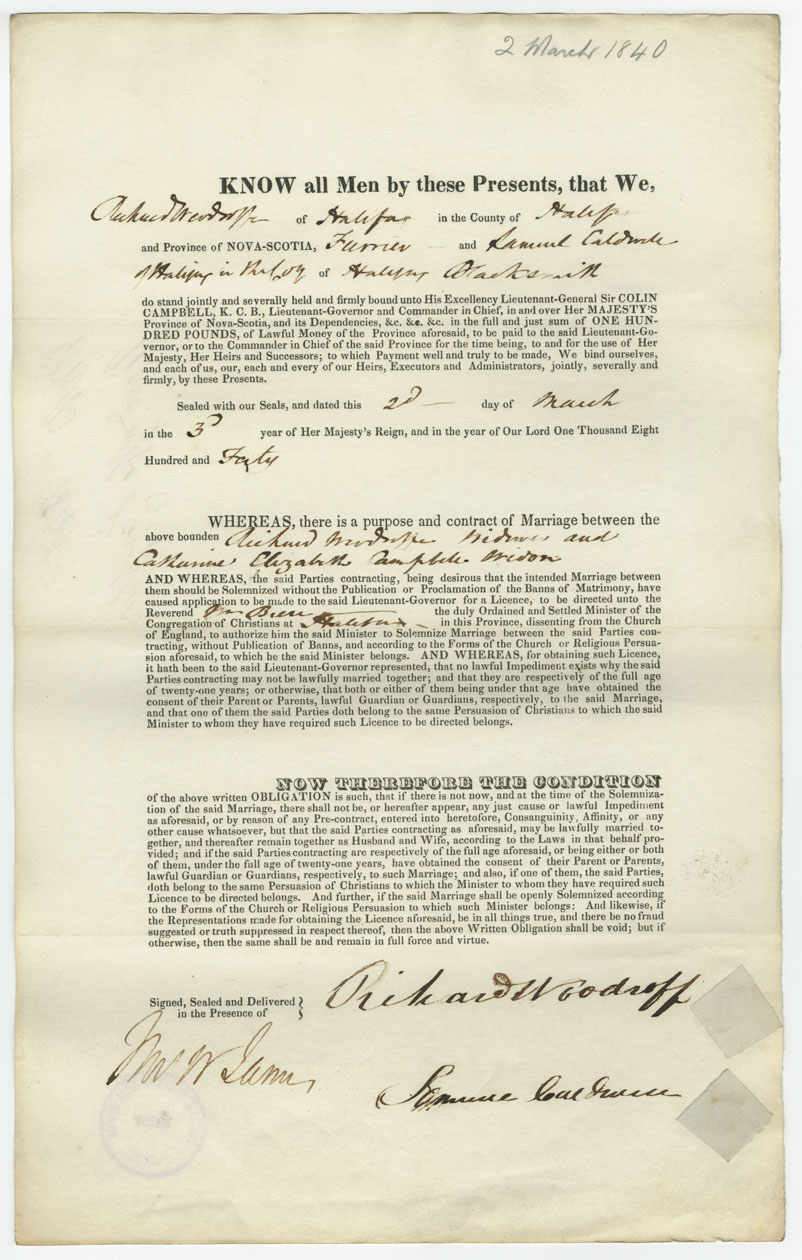 2 March 1840
KNOW all Men by these Presents, that We,
Richard Woodroffe of Halifax in the County of Halifax
and Province of NOVA-SCOTIA, Furrier and Samuel Caldwell
of Halifax in the Coy of Halifax Blacksmith
do stand jointly and severally held and firmly bound unto His Excellency Lieutenant-General Sir COLIN
CAMPBELL, K. C. B., Lieutenant-Governor and Commander in Chief, in and over Her MAJESTY'S
Province of Nova-Scotia, and its Dependencies, &c. &c. &c. in the full and just sum of ONE HUN-
DRED POUNDS, of Lawful Money of the Province aforesaid, to be paid to the said Lieutenant-Go-
vernor, or to the Commander in Chief of the said Province for the time being, to and for the use of Her
Majesty, Her Heirs and Successors; to which Payment well and truly to be made, We bind ourselves,
and each of us, our, each and every of our Heirs, Executors and Administrators, jointly, severally and
firmly, by these Presents.
Sealed with our Seals, and dated this 2d day of March
in the 3d year of Her Majesty's Reign, and in the year of Our Lord One Thousand Eight
Hundred and Forty
WHEREAS, there is a purpose and contract of Marriage between the
above bounden Richard Woodroffe Widower and
Catharine Elizabeth Campbell Widow
AND WHEREAS, the said Parties contracting, being desirous that the intended Marriage between
them should be Solemnized without the Publication or Proclamation of the Banns of Matrimony, have
caused application to be made to the said Lieutenant-Governor for a Licence, to be directed unto the
Reverend Wm the duly Ordained and Settled Minister of the
Congregation of Christians at Halifax in this Province, dissenting from the Church
of England, to authorize him the said Minister to Solemnize Marriage between the said Parties con-
tracting, without Publication of Banns, and according to the Forms of the Church or Religious Persua-
sion aforesaid, to which he the said Minister belongs. AND WHEREAS, for obtaining such Licence,
it hath been to the said Lieutenant-Governor represented, that no lawful Impediment exists why the said
Parties contracting may not be lawfully married together; and that they are respectively of the full age
of twenty-one years; or otherwise, that both or either of them being under that age have obtained the
consent of their Parent or Parents, lawful Guardian or Guardians, respectively, to the said Marriage,
and that one of them the said Parties doth belong to the same Persuasion of Christians to which the said
Minister to whom they have required such Licence to be directed belongs.
NOW THEREFORE THE CONDITION
of the above written OBLIGATION is such, that if there is not now, and at the time of the Solemniza-
tion of the said Marriage, there shall not be, or hereafter appear, any just cause or lawful Impediment
as aforesaid, or by reason of any Pre-contract, entered into heretofore, Consanguinity, Affinity, or any
other cause whatsoever, but that the said Parties contracting as aforesaid, may be lawfully married to-
gether, and thereafter remain together as Husband and Wife, according to the Laws in that behalf pro-
vided; and if the said Parties contracting are respectively of the full age aforesaid, or being either or both
of them, under the full age of twenty-one years, have obtained the consent of their Parent or Parents,
lawful Guardian or Guardians, respectively, to such Marriage; and also, if one of them, the said Parties,
doth belong to the same Persuasion of Christians to which the Minister to whom they have required such
Licence to be directed belongs. And further, if the said Marriage shall be openly Solemnized according
to the Forms of the Church or Religious Persuasion to which such Minister belongs: And likewise, if
the Representations made for obtaining the Licence aforesaid, be in all things true, and there be no fraud
suggested or truth suppressed in respect thereof, then the above Written Obligation shall be void; but if
otherwise, then the same shall be and remain in full force and virtue.
Signed, Sealed and Delivered
in the Presence of
Richard Woodroff
W James
Samuel Caldwell